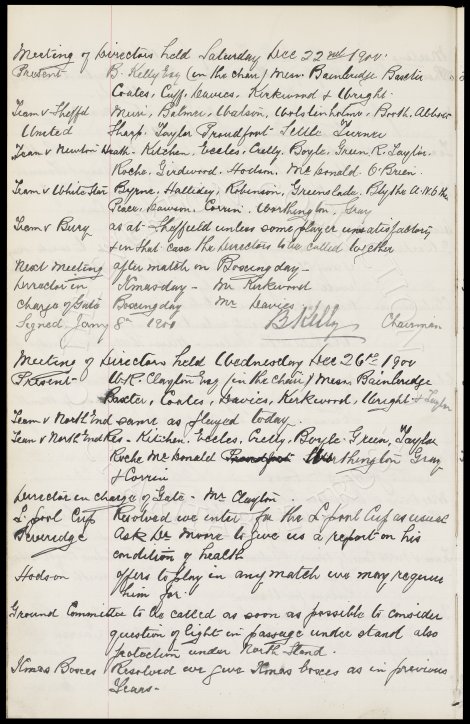 Meeting of Directors held Saturday Dec 22nd 1900.
Present B. Kelly Esq (in the chair) Messrs Bainbridge Baxter
Coates, Cuff, Davies, Kirkwood & Wright.
Team v Sheffd Muir, Balmer, Watson, Wolstenholme, Booth, Abbott
United Sharp, Taylor Proudfoot Settle Turner
Team v Newton Heath - Kitchen, Eccles, Crelly, Boyle, Green, R. Taylor.
Roche, Girdwood, Hodson, McDonald O'Brien.
Team v White Star Byrne, Halliday, Robinson, Greenslade, Blythe A.W.
Dawson, Corrin, Worthington, Gray
Team v Bury as at Sheffield unless some player unsatisfactory
& in that case the Directors to be called together
Next Meeting after match on Boxing day -
Director in Xmas day - Mr Kirkwood
Charge of Gate Boxing day Mr Davies
Signed Jany 8th 1901 B Kelly Chairman
Meeting of Directors held Wednesday Dec 26th 1900
Present - W.R. Clayton Esq (in the chair) Messrs Bainbridge
Baxter, Coates, Davies, Kirkwood, Wright & Taylor
Team v North End same as played today.
Team v North End Res - Kitchen, Eccles, Crelly, Boyle Green, Taylor
Roche McDonald Proudfoot Worthington Gray
& Corrin
Director in charge of Gate - Mr Clayton.
L'pool Cup Resolved we enter for the L'pool Cup as usual
Ask Dr Moore to give us a report on his
condition of health
Hodson offers to play in any match we may require
him for.
Ground Committee to be called as soon as possible to consider
question of light in passage under stand also
protection under North Stand.
Xmas Boxes Resolved we give Xmas boxes as in previous
Years -